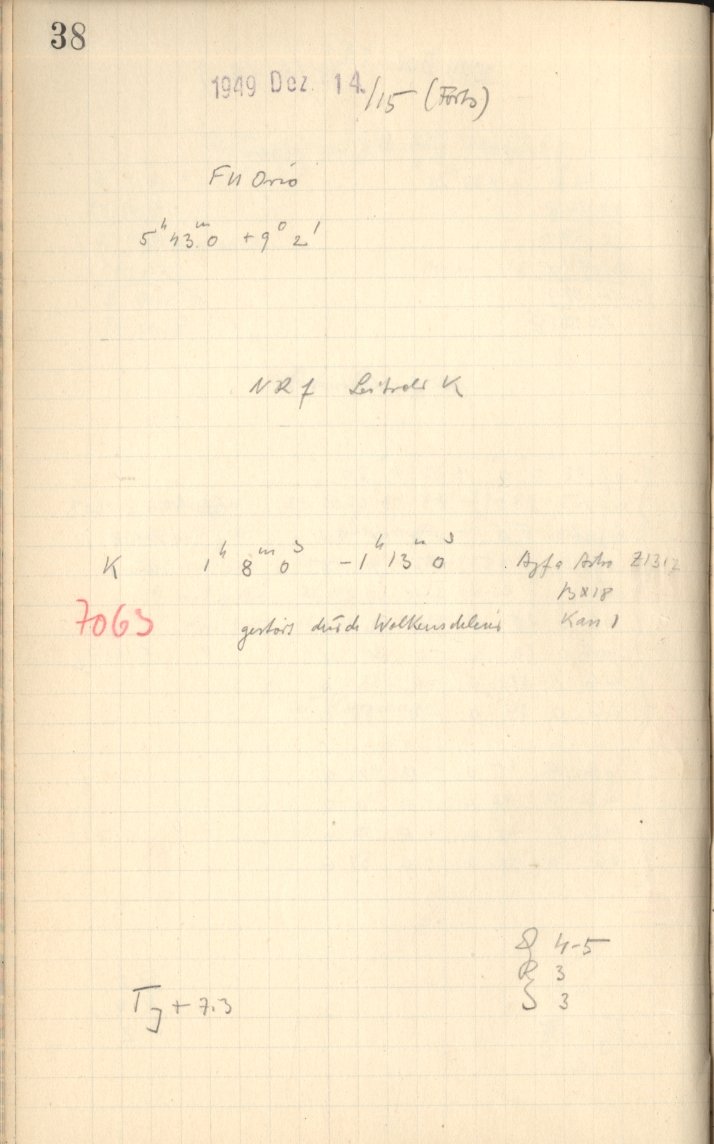 38
1949 Dez. 14./15 (Forts)
FU Orio
5ʰ43ᵐ.0 +9° 2'
NRf Leitrohr K
K 1ʰ 8ᵐ 0ˢ -1ʰ 13ᵐ 0ˢ Agfa Astro Z1312
13x18
7063 gestört durch Wolkenschleier Kass 1
4-5
R 3
S 3
T_J + 7.3